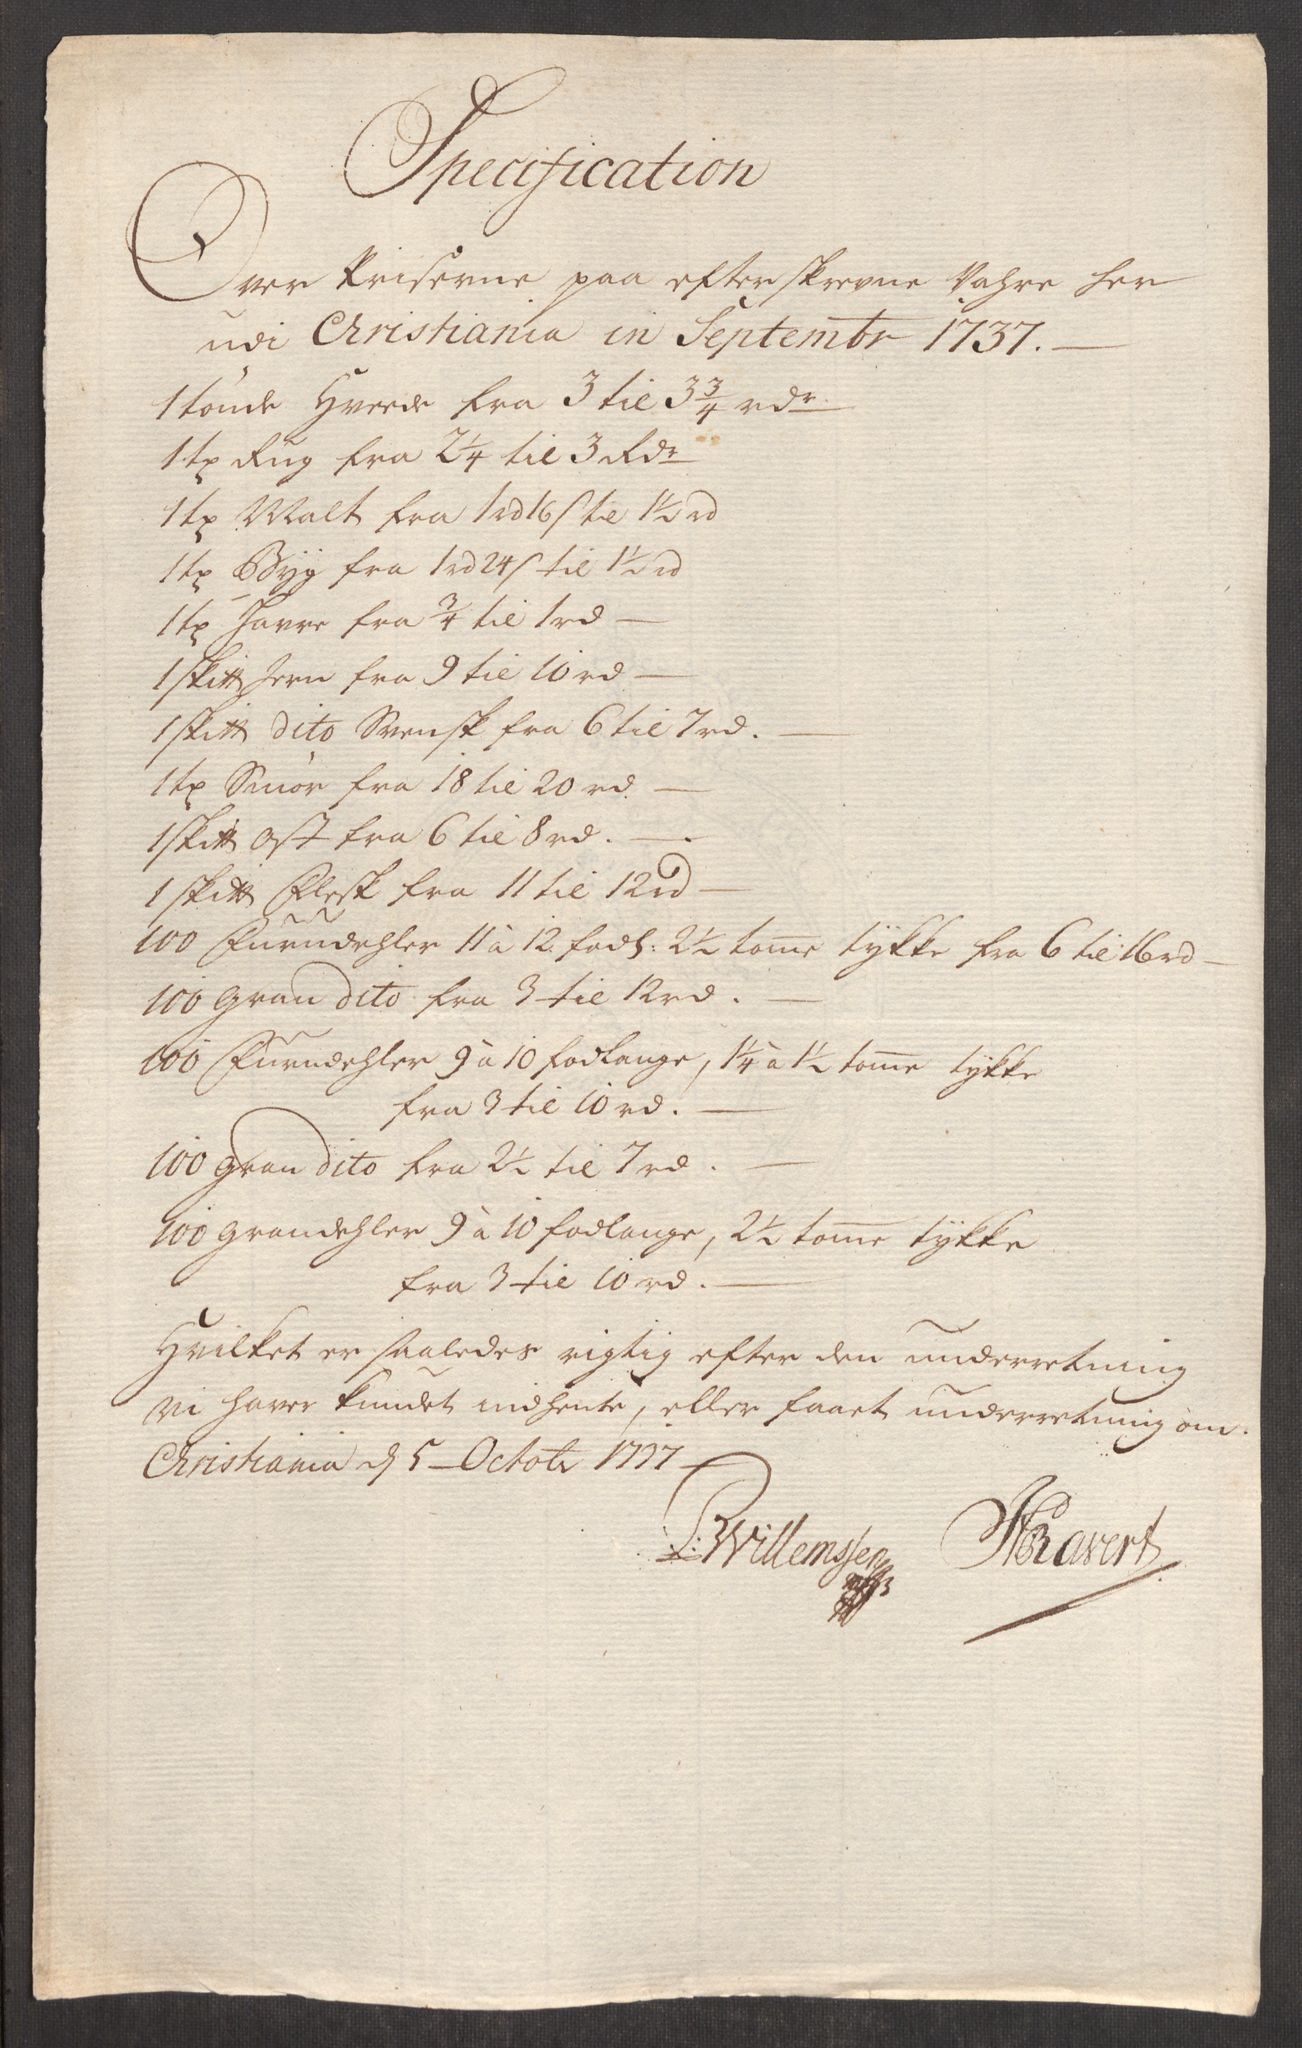 Specification
Over Priserne paa efterskrevne Vahre her
udi Christiania in Septembr 1737.
1 tönde Hveede fra 3 til 3 3/4 rdr
1 tp Rug fra 2 1/4 til 3 Rdr
1 tp Malt fra 1 rd 16 s til 1 1/2 rd
1 tp Byg fra 1 rd 24 s til 1 1/2 rd
1 tp Havre fra 3/4 til 1 rd
1 skitt Jern fra 9 til 10 rd
1 skitt dito Svensk fra 6 til 7 rd.
1 tp Smör fra 18 til 20 rd
1 skitt Ost fra 6 til 8 rd.
1 skitt Flesk fra 11 til 12 rd
100 Furudehler 11 à 12 fods: 2 1/2 tomme tykke fra 6 til 16 rd
100 gran dito fra 3 til 12 rd.
100 Furudehler 9 à 10 fodlange, 1 1/4 à 1 1/2 tomme tykke
fra 3 til 10 rd.
100 gran dito fra 2 1/2 til 7 rd.
100 grandehler 9 à 10 fodlange, 2 1/2 tomme tykke
fra 3 til 10 rd.
Hvilket er saaledes rigtig efter den underretning
vi haver kundet indhente, eller faaet underretning om.
Christiania d 5 Octobr 1737
Willemssen Ravert